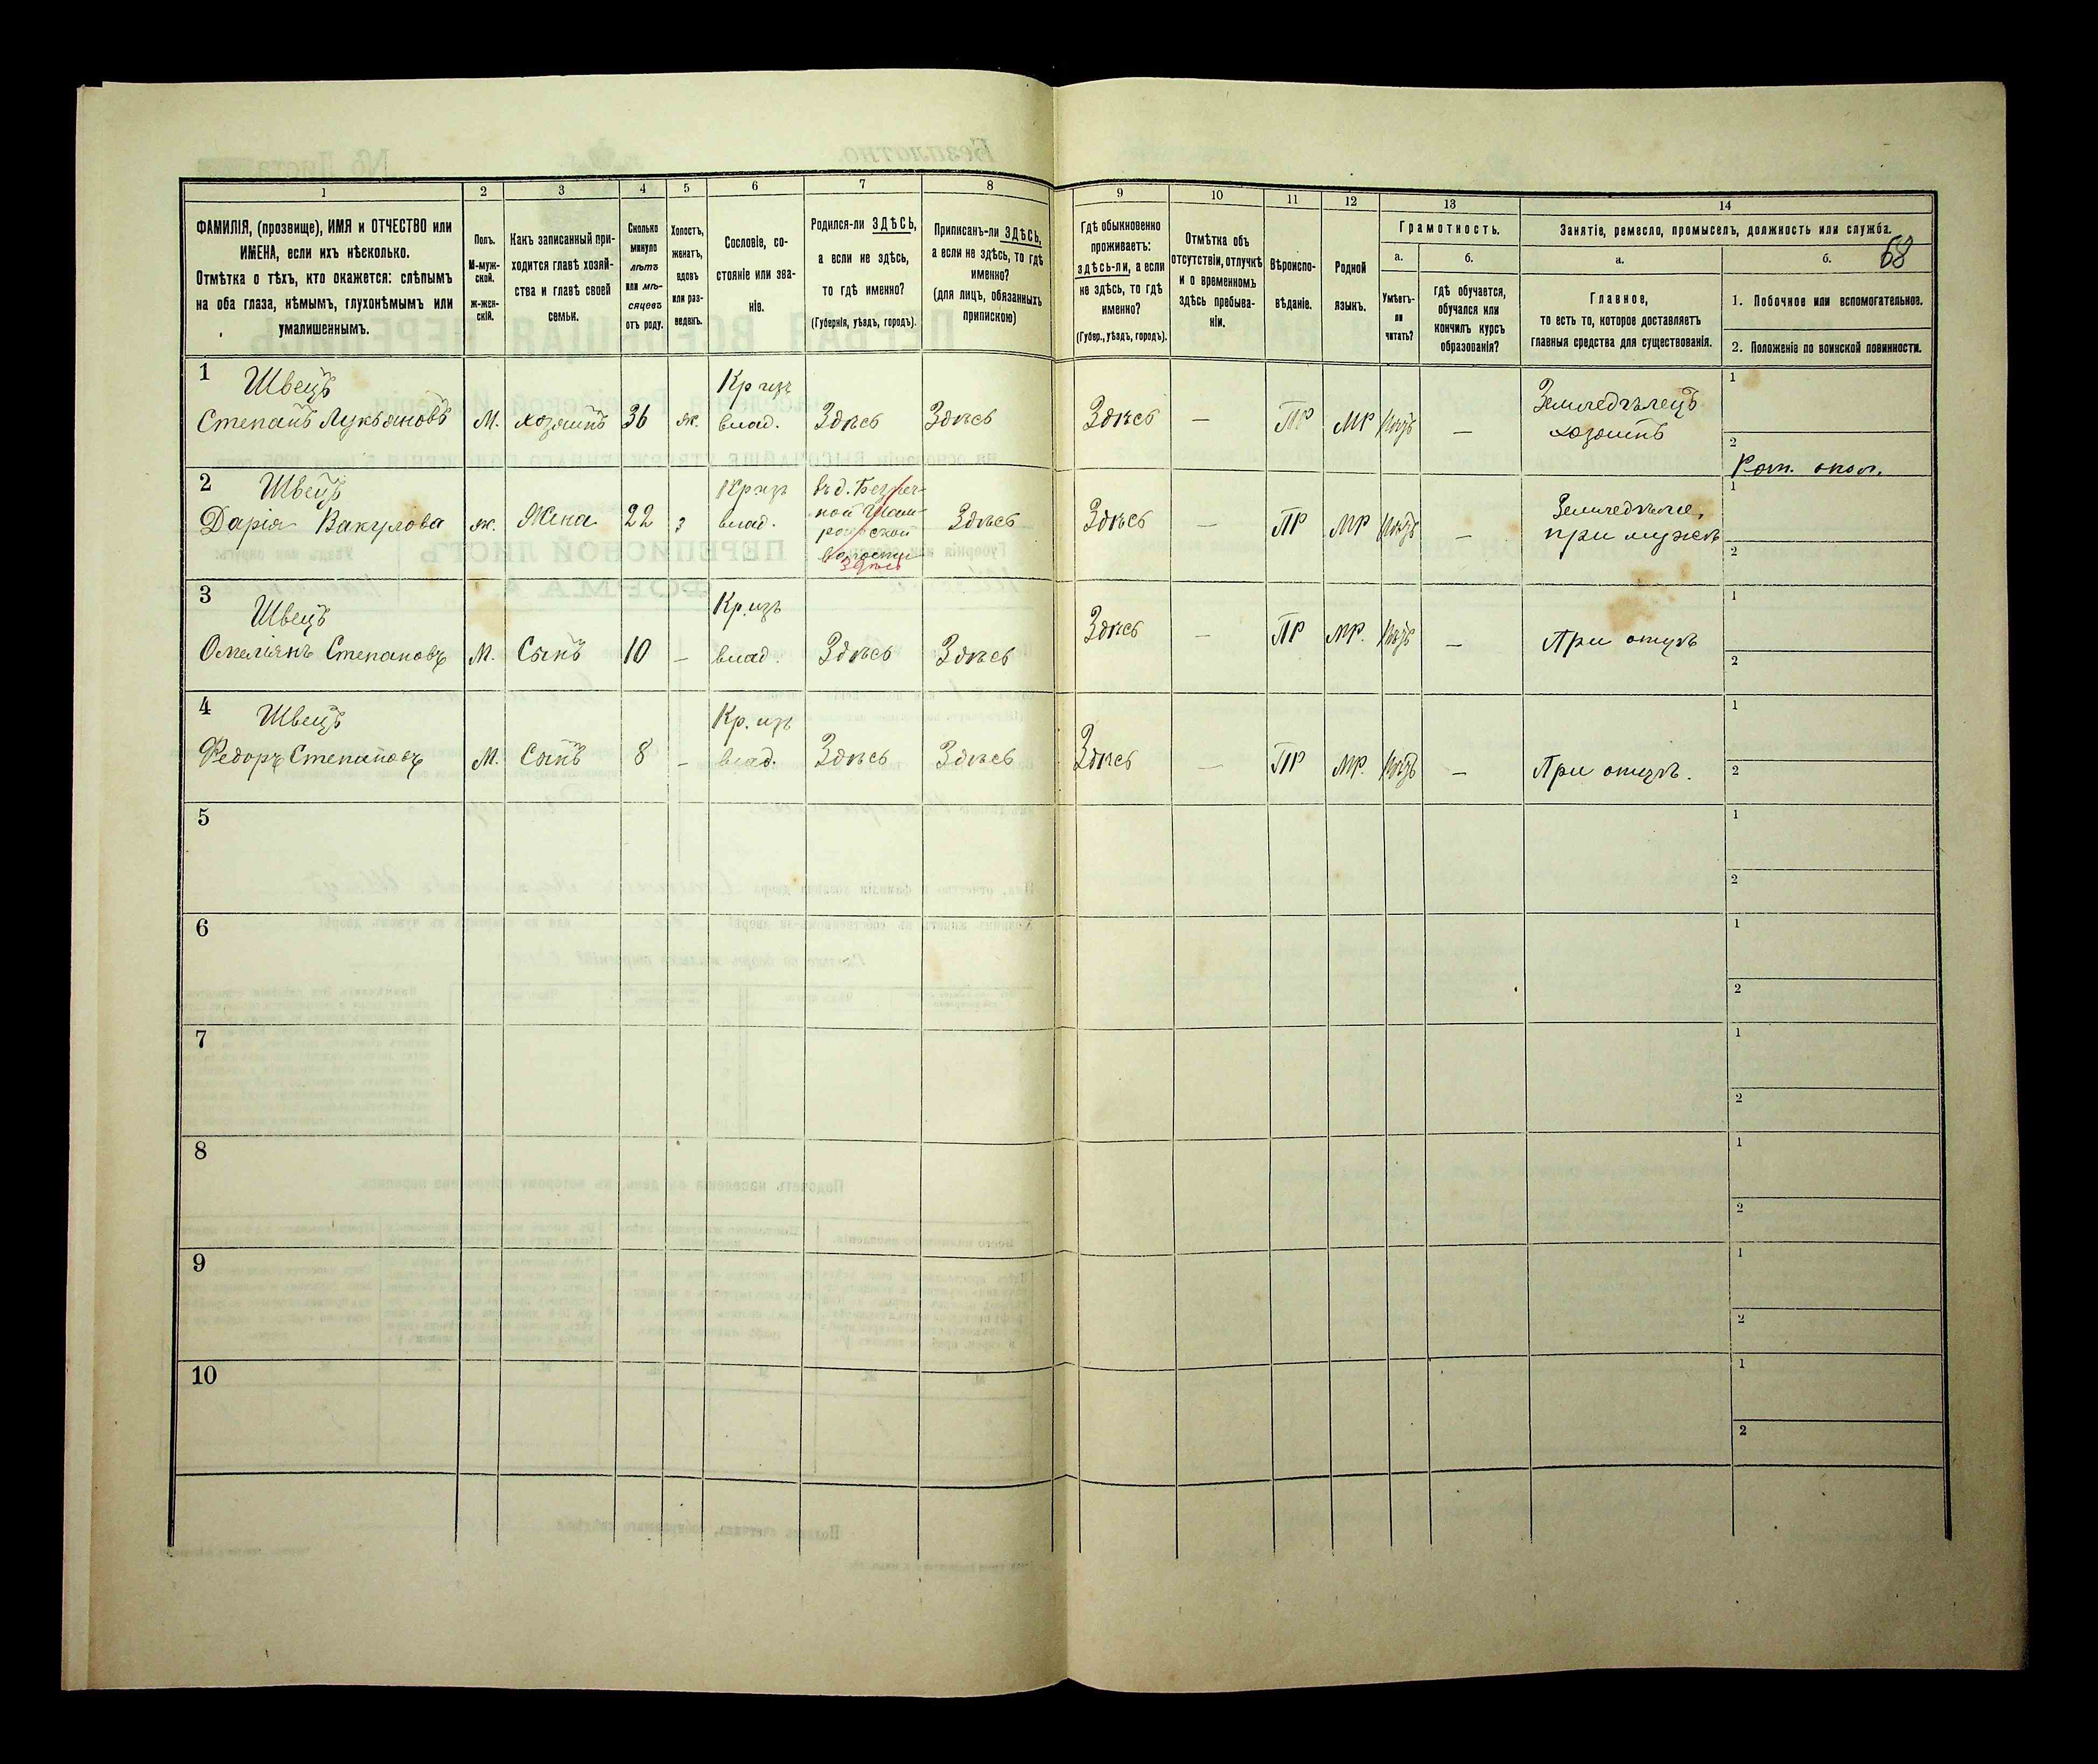 68
1
2
3
4
5
6
7
8
9
10
11
12
13
14
ФАМИЛІЯ, (прозвище), ИМЯ и ОТЧЕСТВО или
ИМЕНА, если ихъ нѣсколько.
Отмѣтка о тѣхъ, кто окажется: слѣпымъ
на оба глаза, нѣмымъ, глухонѣмымъ или
умалишеннымъ.
Полъ.
М-муж-
ской.
ж-жен-
скій.
Какъ записанный при-
ходится главѣ хозяй-
ства и главѣ своей
семьи.
Сколько
минуло
лѣтъ
или мѣ-
сяцевъ
отъ роду.
Холостъ,
женатъ,
вдовъ
или раз-
веденъ.
Сословіе, со-
стояніе или зва-
ніе.
Родился-ли ЗДѢСЬ,
а если не здѣсь,
то гдѣ именно?
(Губернія, уѣздъ, городъ).
Приписанъ-ли ЗДѢСЬ,
а если не здѣсь, то гдѣ
именно?
(для лицъ, обязанныхъ
припискою)
Гдѣ обыкновенно
проживаетъ:
здѣсь-ли, а если
не здѣсь, то гдѣ
именно?
(Губер., уѣздъ, городъ).
Отмѣтка объ
отсутствіи, отлучкѣ
и о временномъ
здѣсь пребыва-
ніи.
Вѣроиспо-
вѣданіе.
Родной
языкъ.
Грамотность.
а.
Умѣетъ-
ли
читать?
б.
гдѣ обучается,
обучался или
кончилъ курсъ
образованія?
Занятіе, ремесло, промыселъ, должность или служба.
а.
Главное,
то есть то, которое доставляетъ
главныя средства для существованія.
б.
1. Побочное или вспомогательное.
2. Положеніе по воинской повинности.
1
Швецъ
Степанъ Лукьяновъ
М.
хозяинъ
36
ж.
Кр изъ
влад.
Здѣсь
Здѣсь
Здѣсь
—
ПР
МР
—
Земледѣлецъ
хозяинъ
1
2
Рат. опол.
2
Швецъ
Дарія Вакулова
ж.
Жена
22
з
Кр изъ
влад.
волости
Здѣсь
Здѣсь
Здѣсь
—
ПР
МР
—
Земледѣліе,
при мужѣ
1
2
3
Швецъ
Омельянъ Степановъ
М.
Сынъ
10
—
Кр. изъ
влад.
Здѣсь
Здѣсь
Здѣсь
—
ПР
МР.
—
При отцѣ
1
2
4
Швецъ
Федоръ Степановъ
М.
Сынъ
8
—
Кр. изъ
влад.
Здѣсь
Здѣсь
Здѣсь
—
ПР
МР.
—
При отцѣ.
1
2
5
1
2
6
1
2
7
1
2
8
1
2
9
1
2
10
1
2